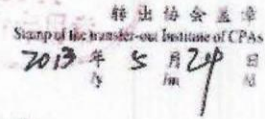 转出协会盖章
Stamp of the transfer-out Institute of CPAs
2013 年 5 月 24 日
/y /m /d